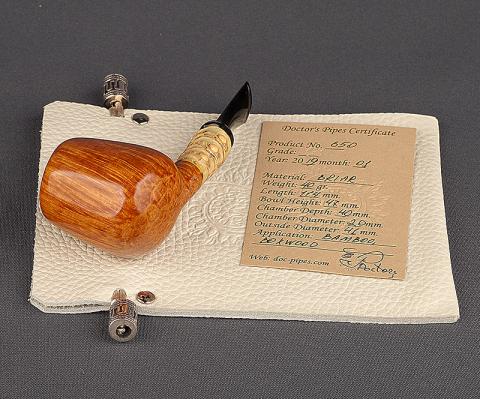 Doctor's Pipes Certificate
Product No. 650
Grade:
Year: 2019 month: 01
Material: BRIAR
Weight: 40 gr.
Length: mm.
Bowl Height: 48 mm.
Chamber Depth: 40 mm.
Chamber Diameter: 20 mm.
Outside Diameter: 46 mm.
Application: BAMBOO,
BOXWOOD
Web: doc-pipes.com Doctors